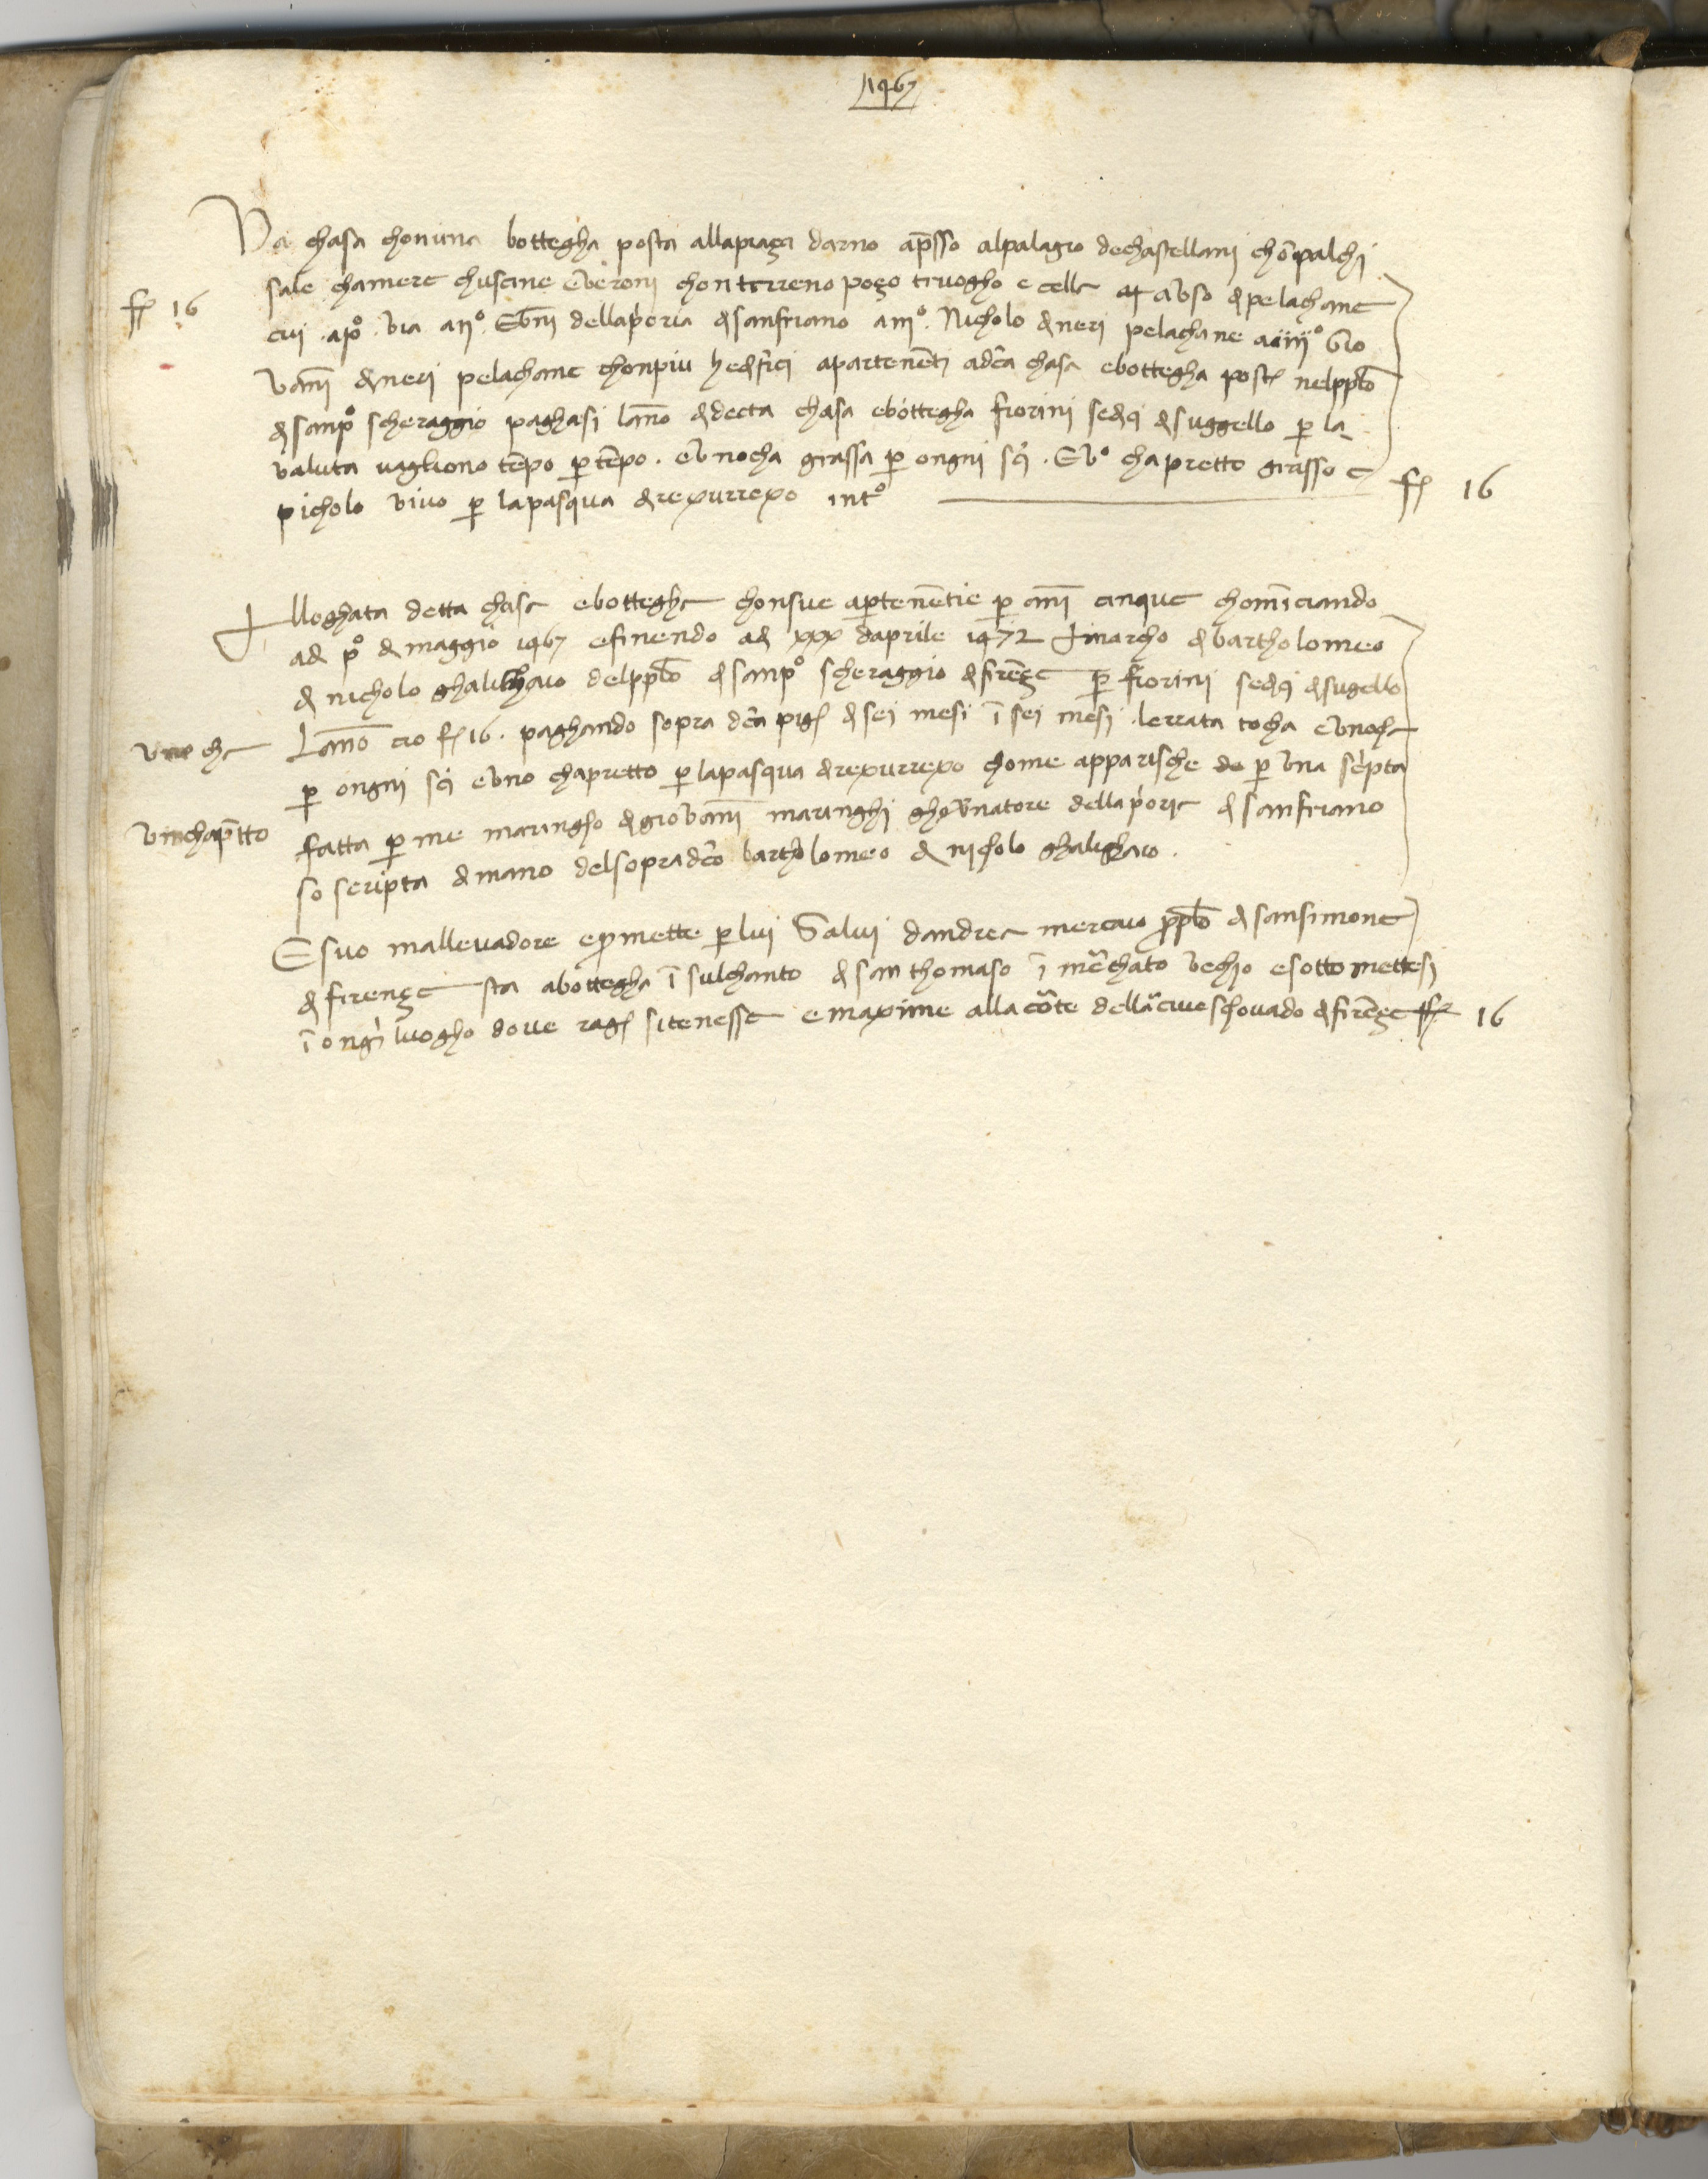 1467
Vna chasa chonuna bottegha posta allapiaza darno apresso alpalagio dechastellani chonpalchi
fj 16
sale chamere chuscine everoni chonterreno pozo truogho e celle atta auso di pelachane
cui . a pº . via a ijº . E beni della poria di sanfriano a iijº . Nicholo di neri pelachane a iiijº Gio
vanni di neri pelachane chonpiu hedifici apartenenti a dca chasa ebottegha posta nelpplo
di sanpº scheraggio paghasi lanno di decta chasa ebottegha fiorini sedici di suggello per la
valuta vagliono tenpo per tenpo . e vnocha grassa per ongni sci . E vº chapretto grasso e
picholo vivo per lapasqua direxurrexo intº fj 16
Alloghata detta chasa ebottegha chonsue apartenentie per anni cinque chominciando
a di pº di maggio 1467 efinendo a di xxx daprile 1472 A marcho di bartholomeo
di nicholo ghalighaio delpplo di sanpº scheraggio di firenze per fiorini sedici di sugello
vno cha
Lanno cio fj 16 . paghando sopra dca pigj di sei mesi i sei mesi . lerrata tocha e vnocha
per ongni sci e vno chapretto per lapasqua direxurrexo chome apparische per vna scripta
vinchapretto
fatta per me maringho di giovanni maringhi ghovernatore della poria di sanfriano
so scripta di mano delsopradco bartholomeo di nicholo ghalighaio .
E suo mallevadore e promette per lui Salvi dandrea merciaio pplo di sansimone
di firenze sta abottegha i sulchanto di san thomaso i merchato vechio esottomettesi
i ongi luogho dove ragj sitenesse e maxime alla corte dellarciveschovado di firenze fj 16